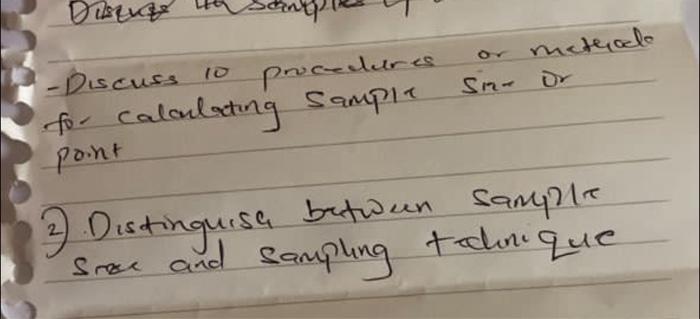 Discuss the samples
-Discuss 10 procedures or methods
for calculating sample size or
point
2) Distinguish between sample
size and sampling technique